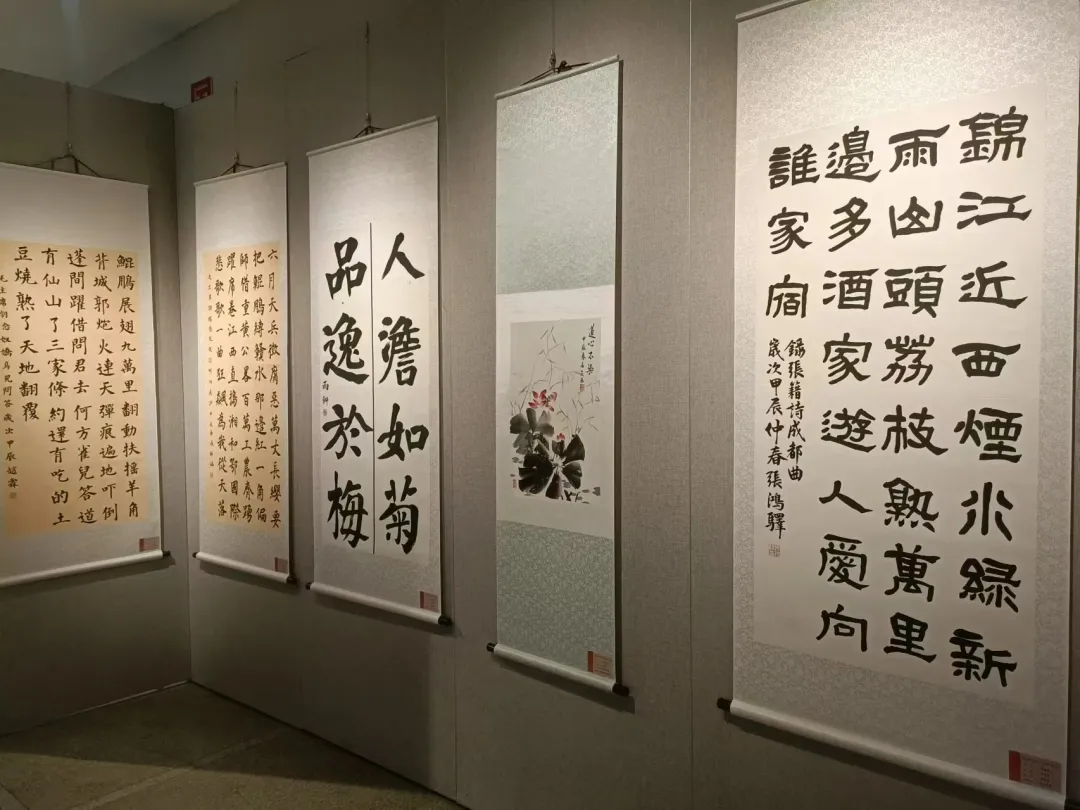 錦江近西煙水綠新
雨山頭荔枝熟萬里
邊多酒家遊人愛向
誰家宿
錄張籍詩成都曲
歲次甲辰仲春張鴻驛
蓮心不染
人澹如菊
品逸於梅
六月天兵徵腐惡萬丈長纓要
把鯤鵬縛贛水那邊紅一角偏
師借重黃公畧百萬工農齊踴
躍席卷江西直搗湘和鄂國際
悲歌歌一曲狂飆為我從天落
鯤鵬展翅九萬里翻動扶搖羊角
背城郭炮火連天彈痕遍地吓倒
蓬間躍借問君去何方雀兒答道
有仙山了三家條約還有吃的土
豆燒熟了天地翻覆